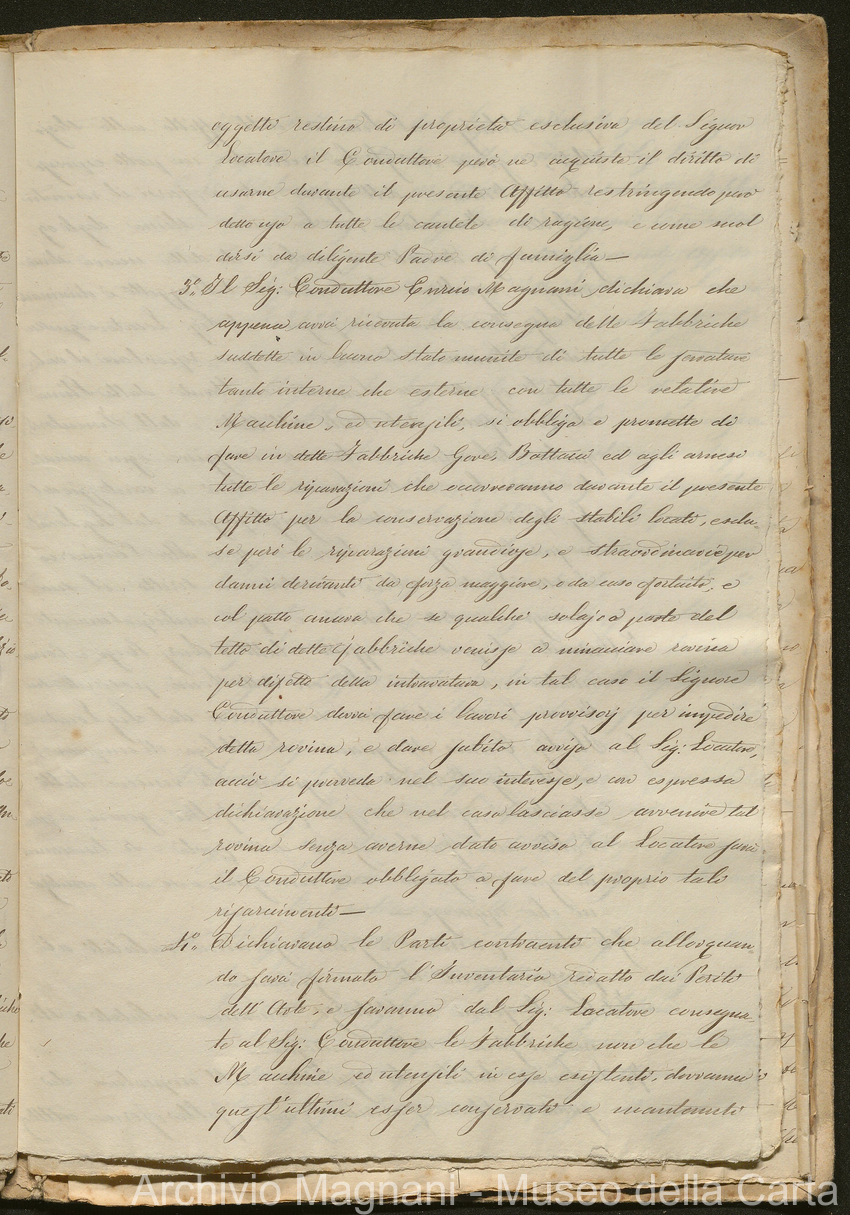 oggetti restino di proprietà esclusiva del Signor
Locatore il Conduttore però ne acquista il diritto di
usarne durante il presente Affitto restringendo però
detto uso a tutte le cautele di ragione, e come suol
dirsi da diligente Padre di famiglia —
3.o Il Sig: Conduttore Enrico Magnani dichiara che
appena avrà ricevuta la consegna delle Fabbriche
suddette in buono stato munite di tutte le serrature
tanto interne che esterne con tutte le relative
Machine, ed utensili, si obbliga e promette di
fare in dette Fabbriche Gore, Bottacci ed agli arnesi
tutte le riparazioni che occorreranno durante il presente
Affitto per la conservazione degli stabili locati, esclu-
se però le riparazioni grandiose, e straordinarie per
danni derivanti da forza maggiore, o da caso fortuito, e
col patto ancora che se qualche solajo o parte del
tetto di dette fabbriche venisse a minacciare rovina
per difetto della intravatura, in tal caso il Signore
Conduttore dovrà fare i lavori provvisorj per impedire
detta rovina, e dare subito avviso al Sig: Locatore,
acciò si provveda nel suo interesse, e con espressa
dichiarazione che nel caso lasciasse avvenire tal
rovina senza averne dato avviso al Locatore sarà
il Conduttore obbligato a fare del proprio tali
risarcimenti —
4.o Dichiarano le Parti contraenti che allorquan-
do sarà firmato l'Inventario redatto dai Periti
dell'Arte, e saranno dal Sig: Locatore consegna-
te al Sig: Conduttore le Fabbriche non che le
Machine ed utensili in esse esistenti, dovranno
quest'ultimi esser conservati e mantenuti
Archivio Magnani - Museo della Carta